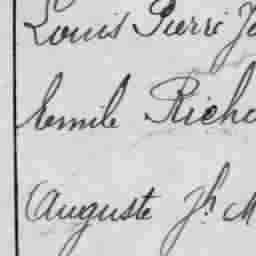 Louis Pierre Jo
Emile Richa
Auguste Jh M